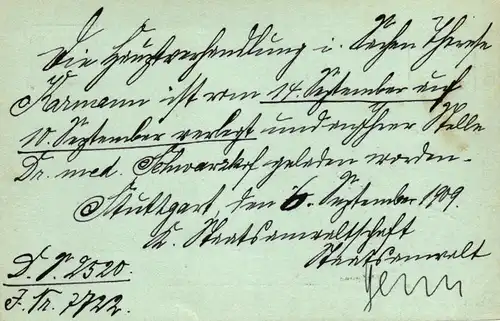 Die Hauptverhandlung i. Sachen Therese
Karmann ist vom 14. September auf
10. September verlegt und an Ihrer Stelle
Dr. med. Schwarzkopf geladen worden.
Stuttgart, den 6. September 1909.
K. Staatsanwaltschaft
Staatsanwalt
D. P. 2520.
J. Nr. 7722.